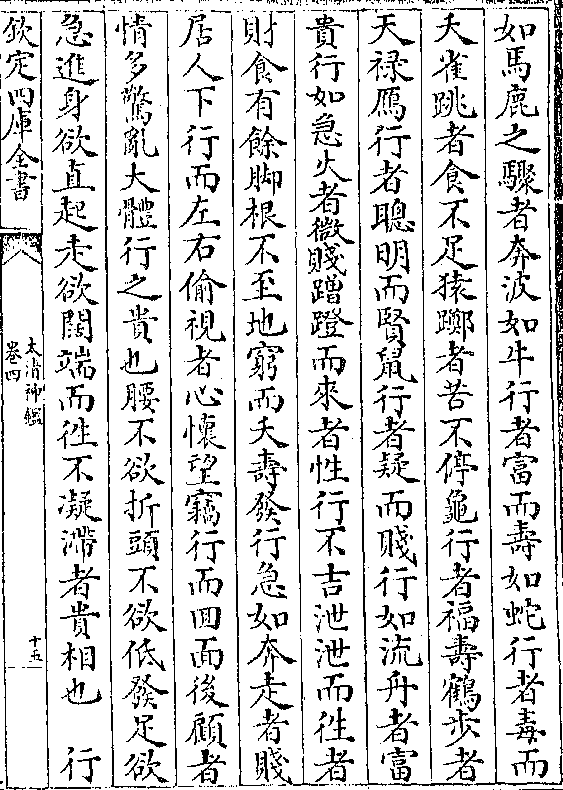 如馬鹿之驟者奔波如牛行者富而壽如蛇行者毒而
夭雀跳者食不足猿躑者苦不停龜行者福壽鶴步者
天祿鴈行者聰明而賢鼠行者疑而賤行如流舟者富
貴行如急火者微賤蹭蹬而來者性行不吉泄泄而徃者
財食有餘脚根不至地窮而夭壽發行急如奔走者賤
居人下行而左右偷視者心懷望竊行而回面後顧者
情多驚亂大體行之貴也腰不欲折頭不欲低發足欲
急進身欲直起走欲闊端而徃不凝滯者貴相也　行
欽定四庫全書
太清神鑑
卷四
十五